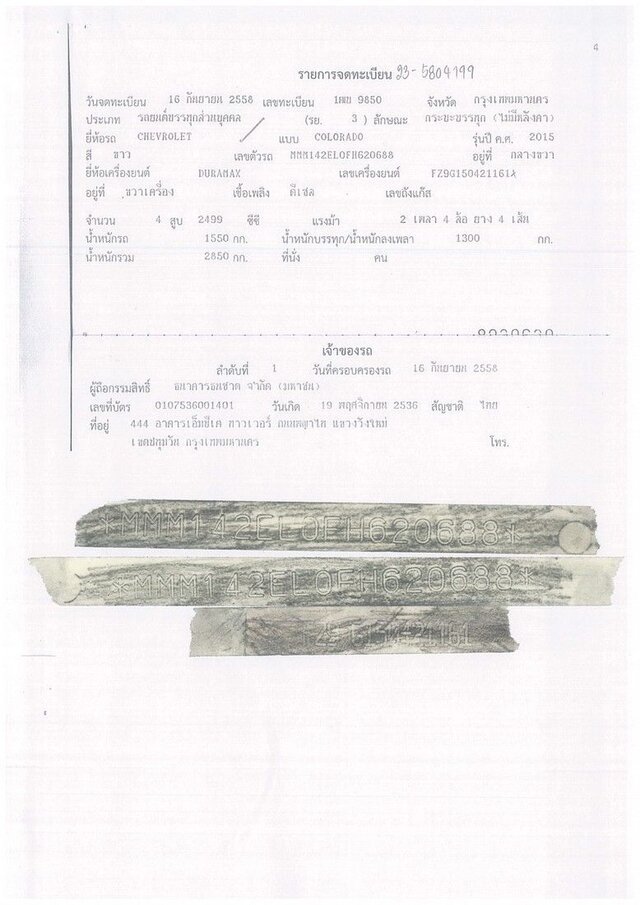 4
รายการจดทะเบียน 23-5804199
วันจดทะเบียน 16 กันยายน 2558 เลขทะเบียน 9850 จังหวัด กรุงเทพมหานคร
ประเภท รถยนต์บรรทุกส่วนบุคคล (รย. 3 ) ลักษณะ กระบะบรรทุก (ไม่มีหลังคา)
ยี่ห้อรถ CHEVROLET แบบ COLORADO รุ่นปี ค.ศ. 2015
สี ขาว เลขตัวรถ MMM142EL0FH620688 อยู่ที่ กลางขวา
ยี่ห้อเครื่องยนต์ DURAMAX เลขเครื่องยนต์ FZ9G150421161A
อยู่ที่ ขวาเครื่อง เชื้อเพลิง ดีเซล เลขถังแก๊ส
จำนวน 4 สูบ 2499 ซีซี แรงม้า 2 เพลา 4 ล้อ ยาง 4 เส้น
น้ำหนักรถ 1550 กก. น้ำหนักบรรทุก/น้ำหนักลงเพลา 1300 กก.
น้ำหนักรวม 2850 กก. ที่นั่ง คน
เจ้าของรถ
ลำดับที่ 1 วันที่ครอบครองรถ 16 กันยายน 2558
ผู้ถือกรรมสิทธิ์ ธนาคารธนชาต จำกัด (มหาชน)
เลขที่บัตร 0107536001401 วันเกิด 19 พฤศจิกายน 2536 สัญชาติ ไทย
ที่อยู่ 444 อาคารเอ็มบีเค ทาวเวอร์ ถนนพญาไท แขวงวังใหม่
เขตปทุมวัน กรุงเทพมหานคร โทร.
*MMM142EL0FH620688*
*MMM142EL0FH620688*